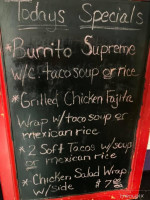 Todays Specials
*Burrito Supreme
w/c taco soup or rice
*Grilled Chicken Fajita
Wrap w/taco soup or
mexican rice
*2 Soft Tacos w/soup
or mexican rice
*Chicken Salad Wrap
w/side $7